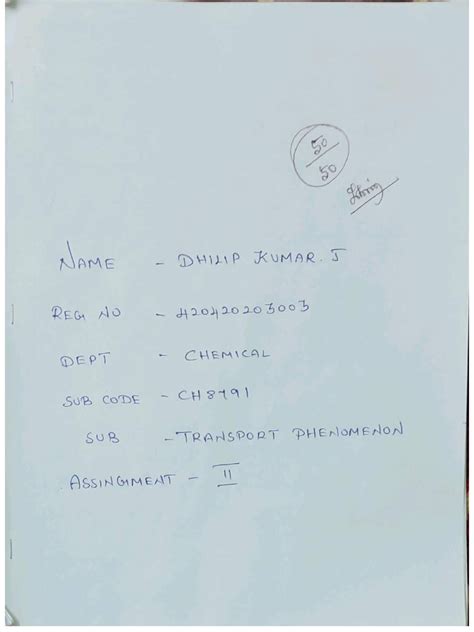 50
50
NAME - DHILIP KUMAR. J
REG NO - 420420203003
DEPT - CHEMICAL
SUB CODE - CH8791
SUB - TRANSPORT PHENOMENON
ASSINGMENT - II